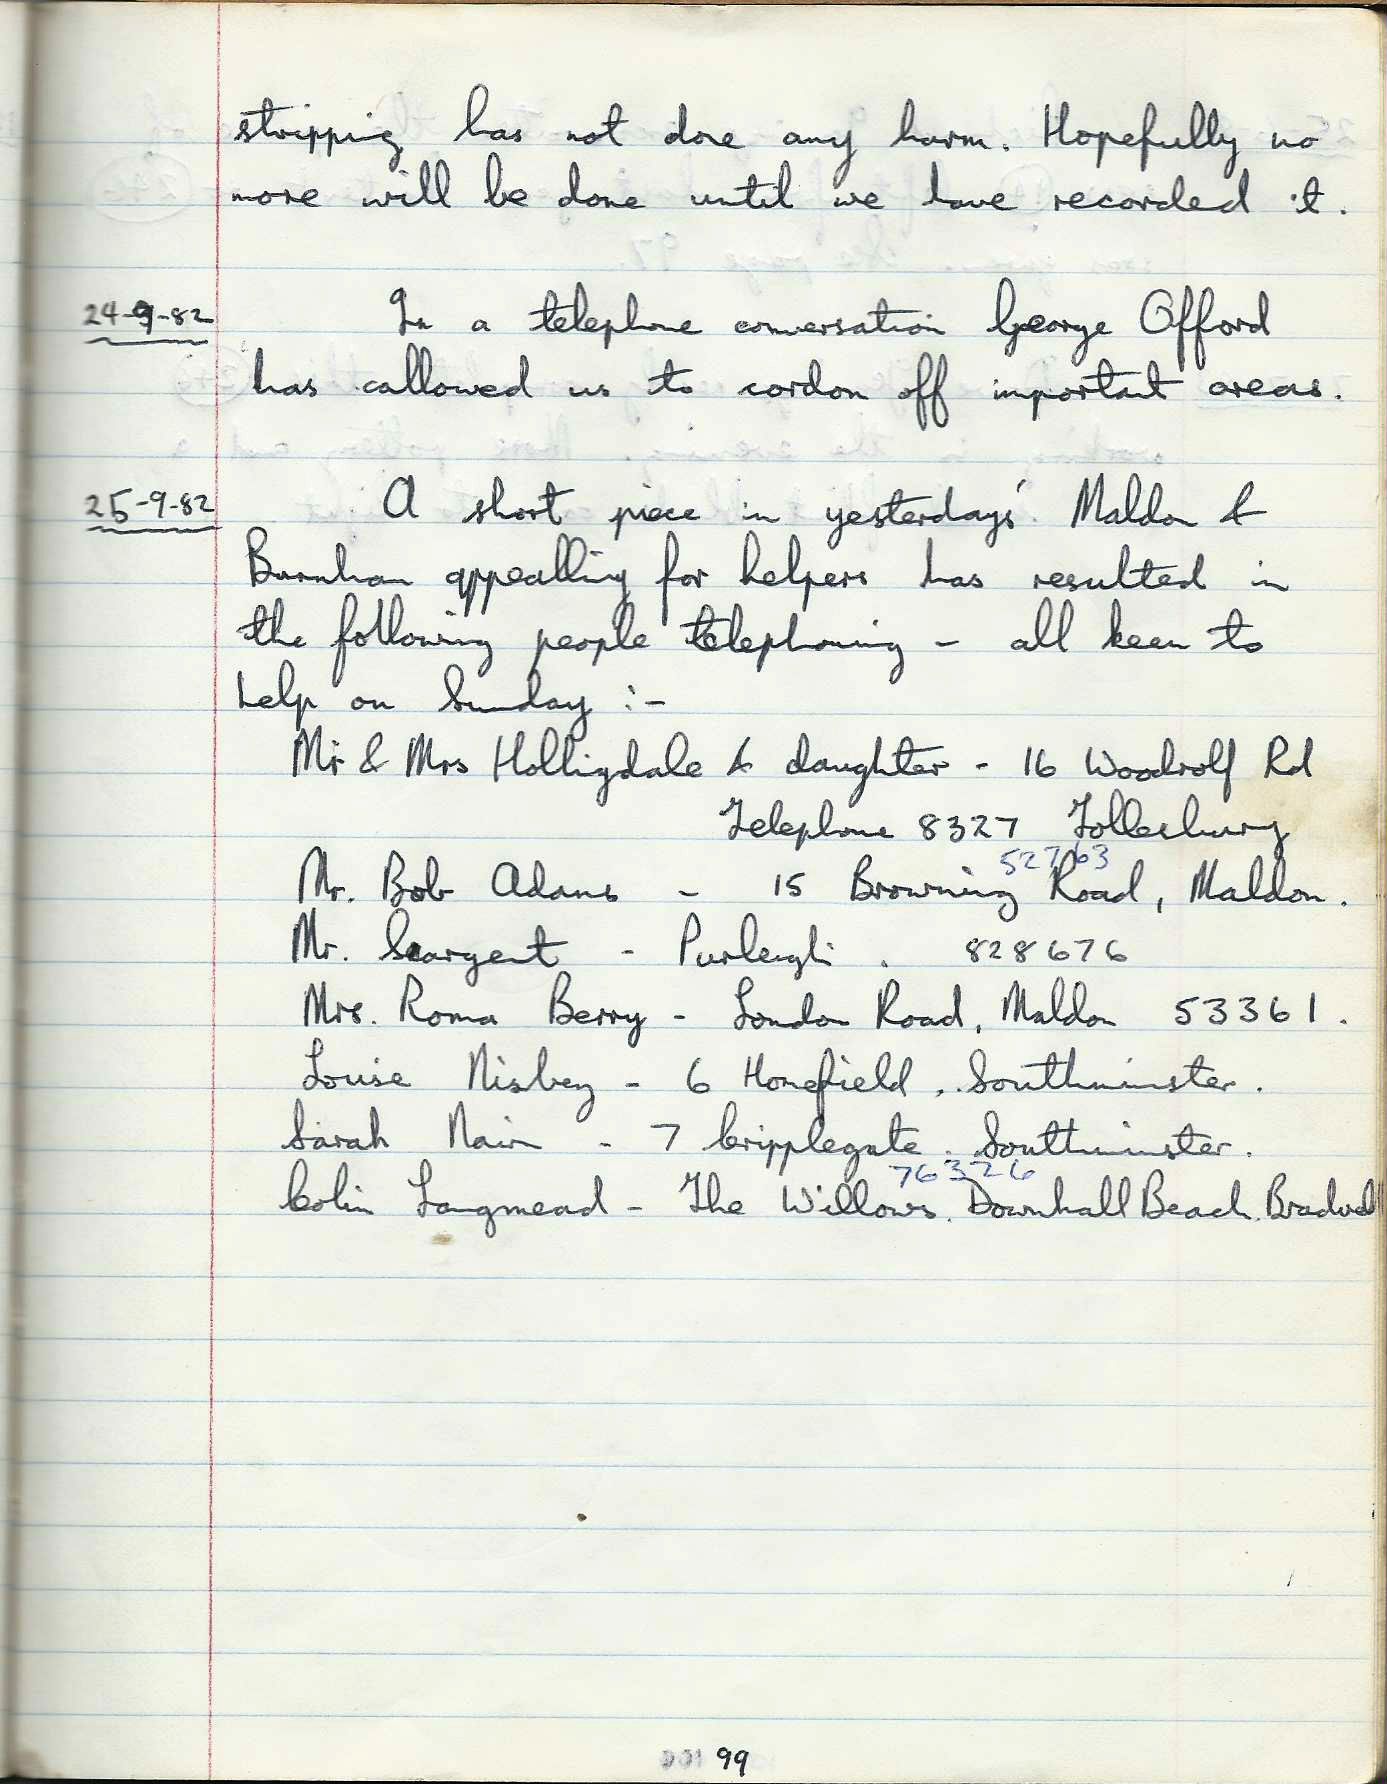 stripping has not done any harm. Hopefully no
more will be done until we have recorded it.
24-9-82 In a telephone conversation George Offord
has callowed us to cordon off important areas.
25-9-82 A short piece in yesterdays' Maldon &
Burnham appealling for helpers has resulted in
the following people telephoning - all keen to
help on Sunday :-
Mr & Mrs Holligdale & daughter - 16 Woodrolf Rd
Telephone 8327 Tollesbury
52763
Mr. Bob Adams - 15 Browning Road, Maldon.
Mr. Seargent - Purleigh. 828676
Mrs. Roma Berry - London Road, Maldon 53361.
Louise Nisbey - 6 Homefield, Southminster.
Sarah Nair - 7 Cripplegate. Southminster.
76326
Colin Langmead - The Willows. Downhall Beach. Bradwell
99